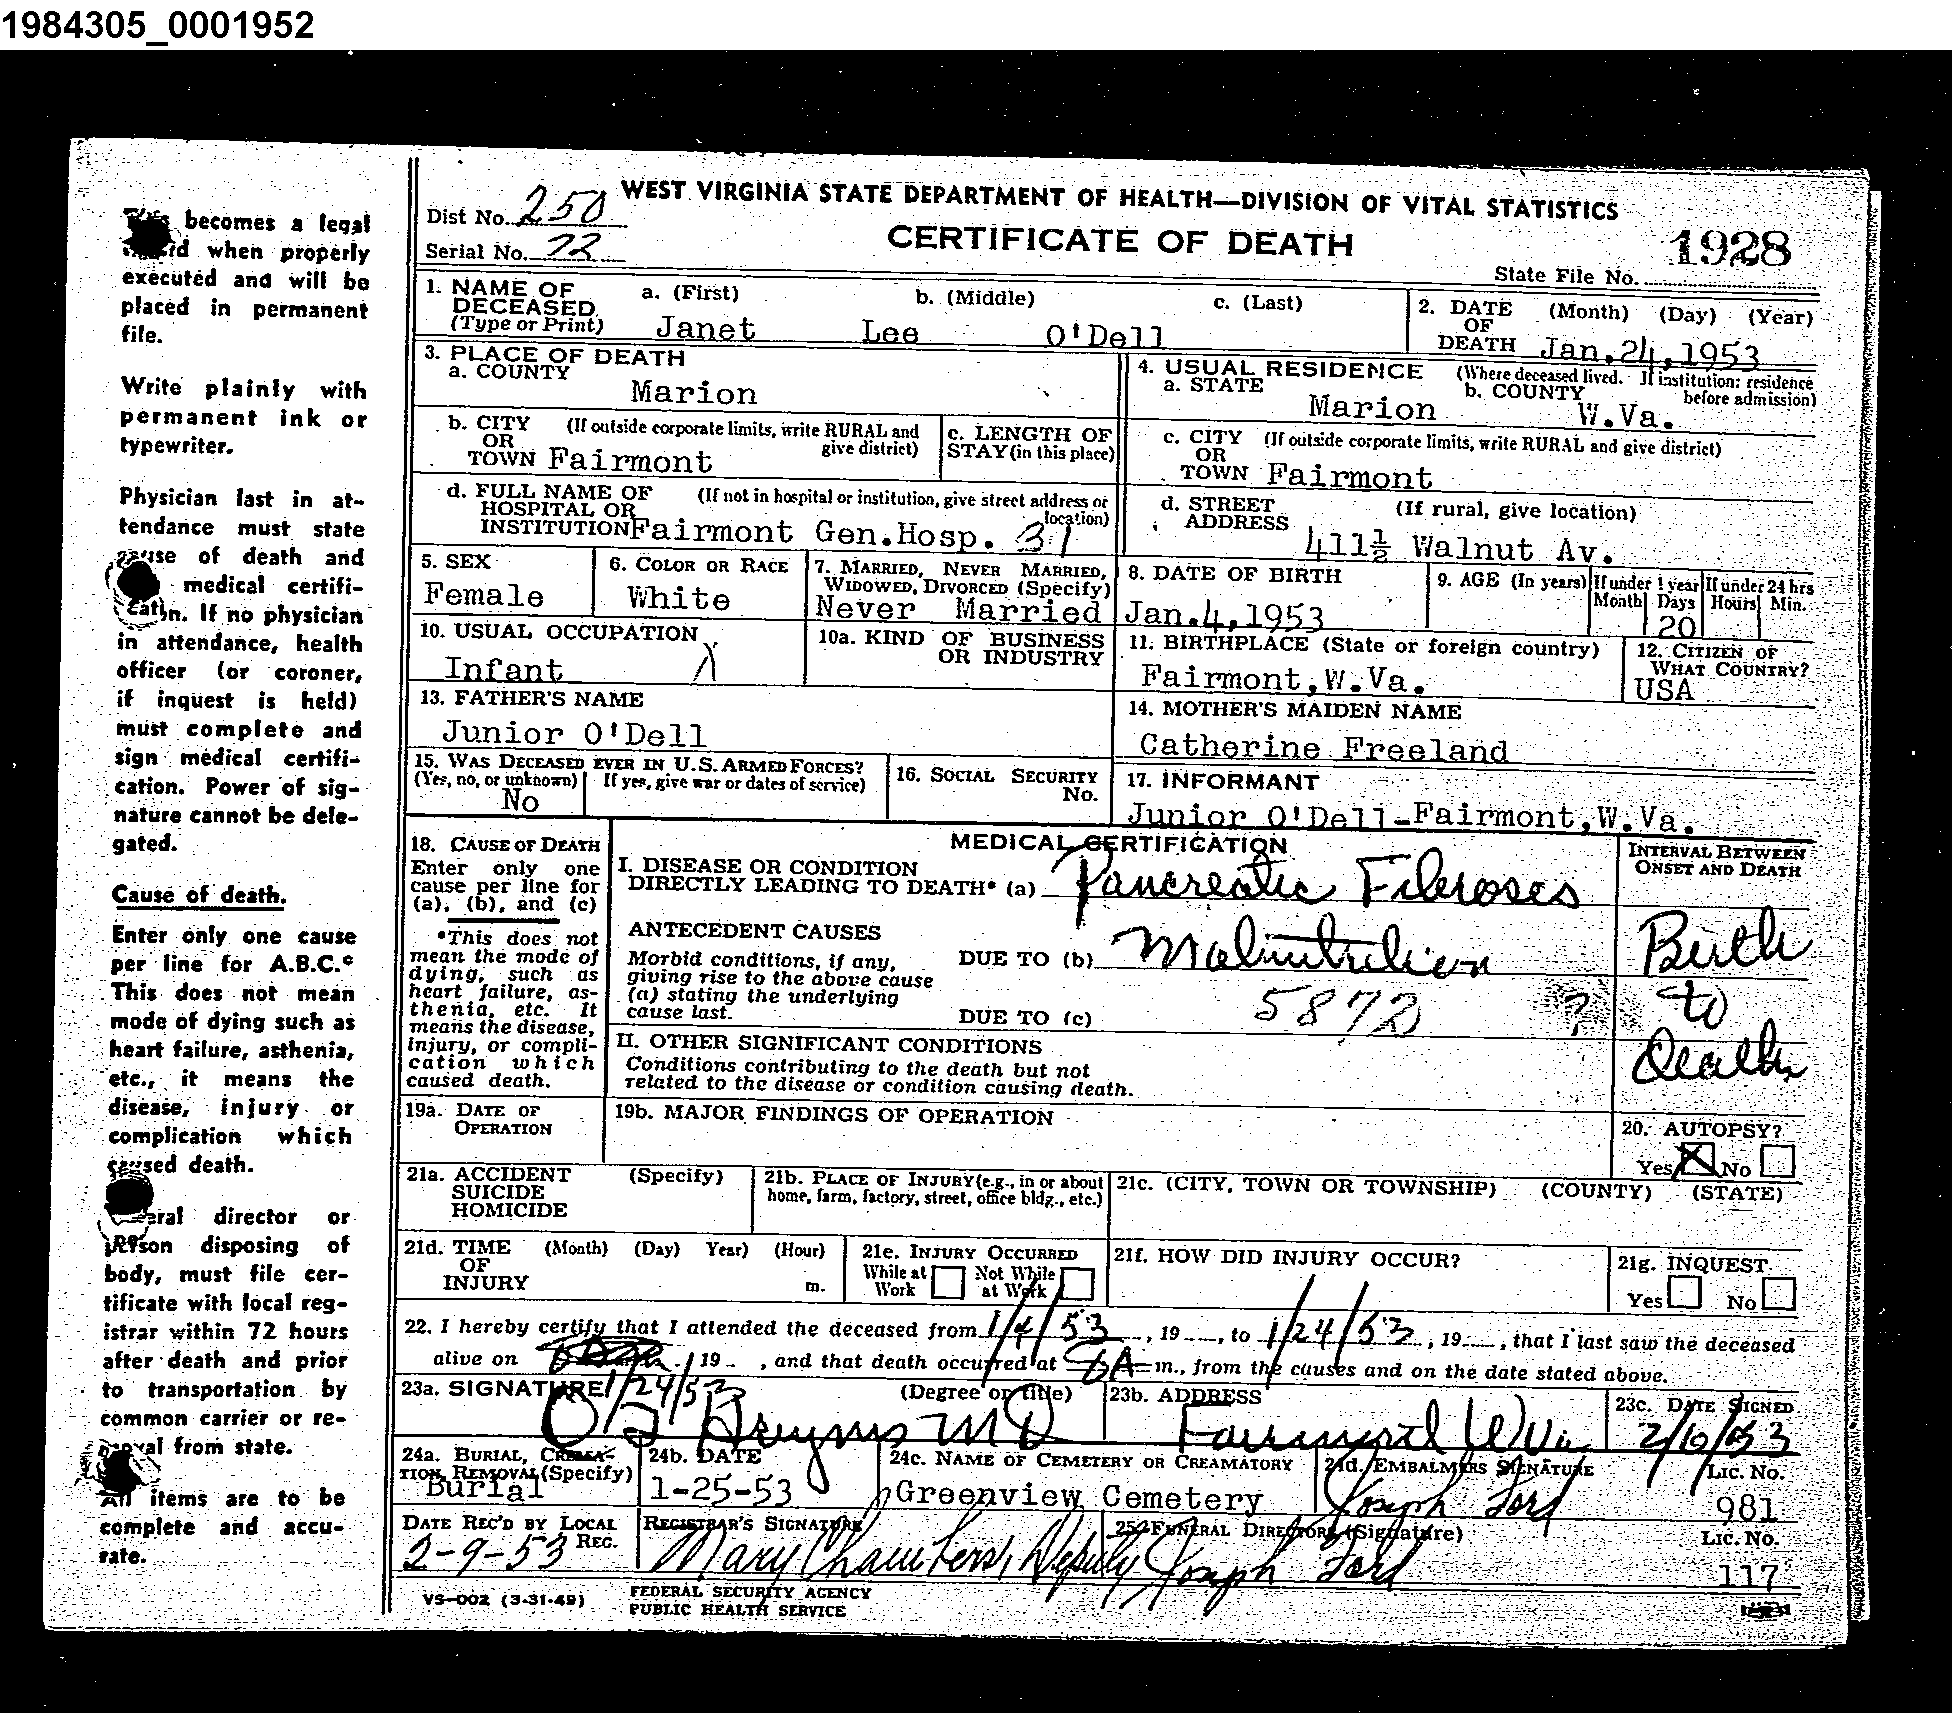 1984305_0001952
becomes a legal
when properly
executed and will be
placed in permanent
file.
Write plainly with
permanent ink or
typewriter.
Physician last in at-
tendance must state
cause of death and
medical certifi-
catin. If no physician
in attendance, health
officer (or coroner,
if inquest is held)
must complete and
sign medical certifi-
cation. Power of sig-
nature cannot be dele-
gated.
Cause of death.
Enter only one cause
per line for A.B.C.*
This does not mean
mode of dying such as
heart failure, asthenia,
etc., it means the
disease, injury or
complication which
caused death.
director or
person disposing of
body, must file cer-
tificate with local reg-
istrar within 72 hours
after death and prior
to transportation by
common carrier or re-
moval from state.
All items are to be
complete and accu-
rate.
Dist No. 250
WEST VIRGINIA STATE DEPARTMENT OF HEALTH—DIVISION OF VITAL STATISTICS
Serial No. 72
CERTIFICATE OF DEATH
State File No. 1928
1. NAME OF DECEASED (Type or Print) a. (First) b. (Middle) c. (Last)
Janet Lee O'Dell
2. DATE OF DEATH (Month) (Day) (Year)
Jan.24,1953
3. PLACE OF DEATH
a. COUNTY
Marion
4. USUAL RESIDENCE (Where deceased lived. If institution: residence before admission)
a. STATE Marion b. COUNTY W.Va.
b. CITY OR TOWN (If outside corporate limits, write RURAL and give district)
Fairmont
c. LENGTH OF STAY (in this place)
c. CITY OR TOWN (If outside corporate limits, write RURAL and give district)
Fairmont
d. FULL NAME OF HOSPITAL OR INSTITUTION (If not in hospital or institution, give street address or location)
Fairmont Gen.Hosp. 31
d. STREET ADDRESS (If rural, give location)
411½ Walnut Av.
5. SEX
Female
6. COLOR OR RACE
White
7. MARRIED, NEVER MARRIED, WIDOWED, DIVORCED (Specify)
Never Married
8. DATE OF BIRTH
Jan.4,1953
9. AGE (In years) If under 1 year Month Days If under 24 hrs Hours Min.
20
10. USUAL OCCUPATION
Infant
10a. KIND OF BUSINESS OR INDUSTRY
11. BIRTHPLACE (State or foreign country)
Fairmont,W.Va.
12. CITIZEN OF WHAT COUNTRY?
USA
13. FATHER'S NAME
Junior O'Dell
14. MOTHER'S MAIDEN NAME
Catherine Freeland
15. WAS DECEASED EVER IN U.S. ARMED FORCES?
(Yes, no, or unknown) If yes, give war or dates of service)
No
16. SOCIAL SECURITY No.
17. INFORMANT
Junior O'Dell-Fairmont,W.Va.
18. CAUSE OF DEATH
Enter only one
cause per line for
(a), (b), and (c)
*This does not
mean the mode of
dying, such as
heart failure, as-
thenia, etc. It
means the disease,
injury, or compli-
cation which
caused death.
MEDICAL CERTIFICATION
I. DISEASE OR CONDITION
DIRECTLY LEADING TO DEATH* (a) Pancreatic Fibroses
ANTECEDENT CAUSES
Morbid conditions, if any,
giving rise to the above cause
(a) stating the underlying
cause last.
DUE TO (b) Malnutrition
DUE TO (c)
5872 ?
INTERVAL BETWEEN
ONSET AND DEATH
Birth
to
Death
II. OTHER SIGNIFICANT CONDITIONS
Conditions contributing to the death but not
related to the disease or condition causing death.
19a. DATE OF OPERATION
19b. MAJOR FINDINGS OF OPERATION
20. AUTOPSY?
Yes X No
21a. ACCIDENT SUICIDE HOMICIDE (Specify)
21b. PLACE OF INJURY (e.g., in or about home, farm, factory, street, office bldg., etc.)
21c. (CITY, TOWN OR TOWNSHIP) (COUNTY) (STATE)
21d. TIME OF INJURY (Month) (Day) Year) (Hour) m.
21e. INJURY OCCURRED
While at Work Not While at Work
21f. HOW DID INJURY OCCUR?
21g. INQUEST
Yes No
22. I hereby certify that I attended the deceased from 1/4/53, 19__, to 1/24/53, 19__, that I last saw the deceased
alive on 19 , and that death occurred at 6A m., from the causes and on the date stated above.
1/24/53
23a. SIGNATURE (Degree or title)
MD
23b. ADDRESS
Fairmont W Va
23c. DATE SIGNED
2/6/53
24a. BURIAL, CREMATION, REMOVAL (Specify)
Burial
24b. DATE
1-25-53
24c. NAME OF CEMETERY OR CREAMATORY
Greenview Cemetery
24d. EMBALMERS SIGNATURE LIC. NO.
Joseph Ford 981
DATE REC'D BY LOCAL REG.
2-9-53
REGISTRAR'S SIGNATURE
Mary Chambers, Deputy
25. FUNERAL DIRECTORS (Signature) LIC. NO.
Joseph Ford 117
VS-002 (3-31-49)
FEDERAL SECURITY AGENCY
PUBLIC HEALTH SERVICE